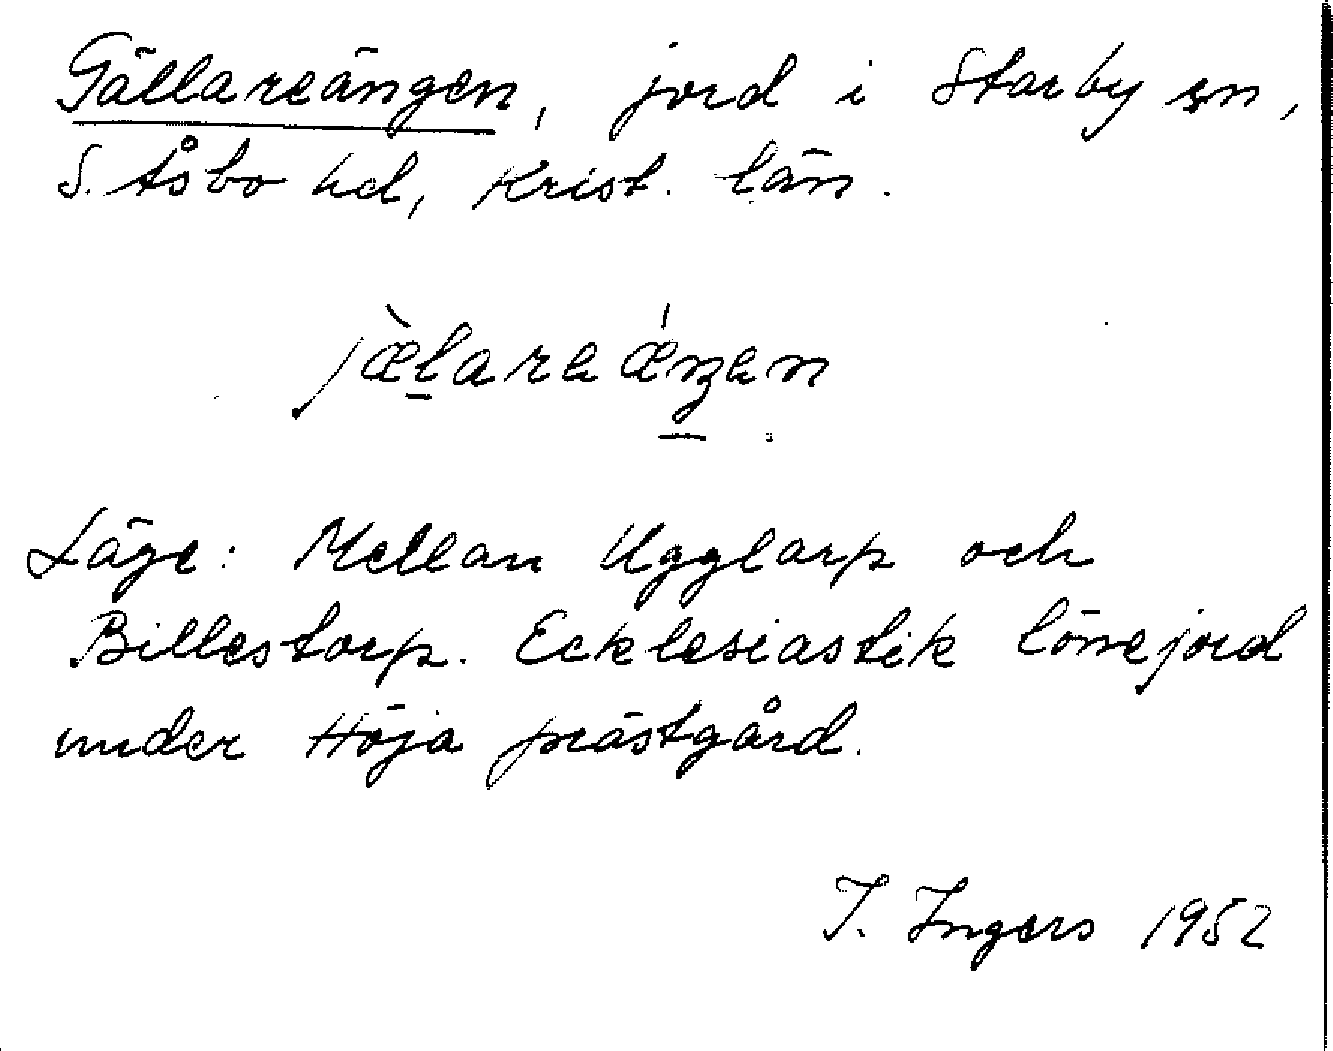 Gällareängen, jord i Starby sn,
S. Åsbo hd, Krist. län.
jæ̀lareǽŋen
Läge: Mellan Ugglarp och
Billestorp. Ecklesiastik lönejord
under Höja prästgård.
I. Ingers 1952